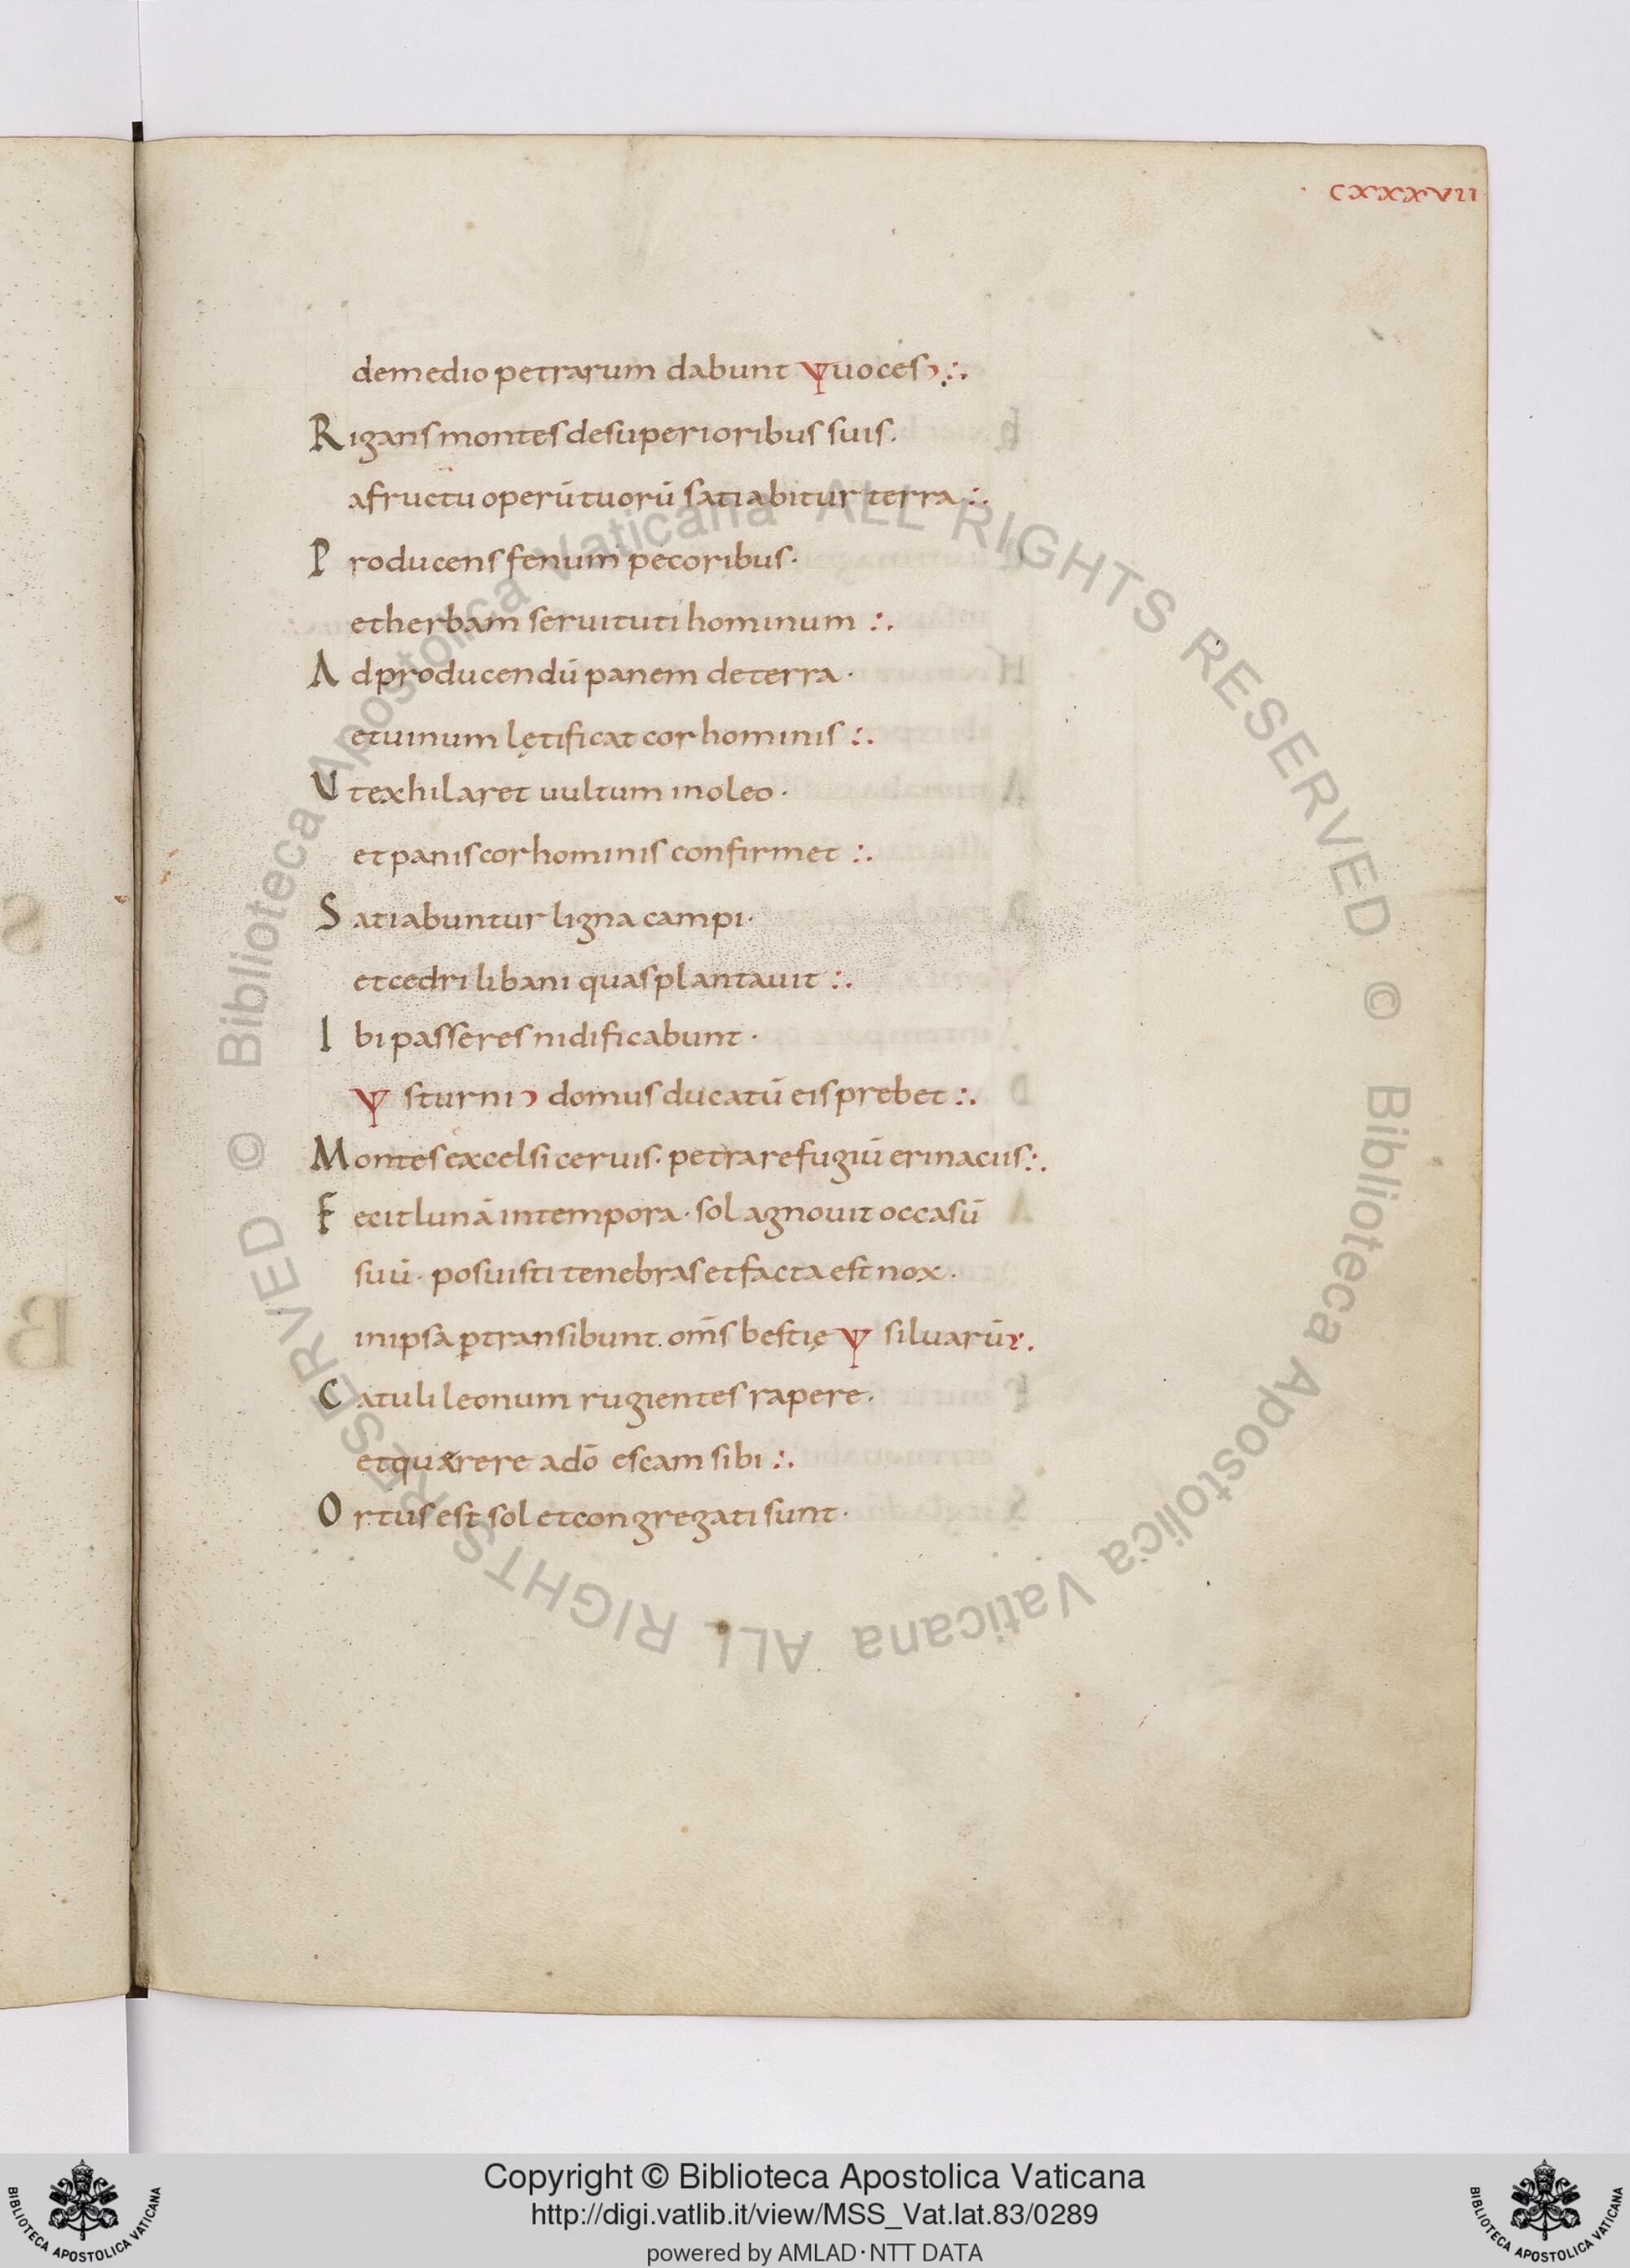 CXXXVII
demedio petrarum dabunt ѱuoces·:·
Rigans montes desuperioribus suis.
afructu operū tuorū satiabitur terra :.
Producens fenum pecoribus·
et herbam seruituti hominum :.
Adproducendū panem deterra·
etuinum lętificat cor hominis :.
Utexhilaret uultum inoleo·
et panis cor hominis confirmet :.
Satiabuntur ligna campi·
etcedri libani quas plantauit :.
Ibi passeres nidificabunt·
ѱ sturni domus ducatū eis prebet :.
Montes excelsi ceruis· petra refugiū erinacus :.
Fecit lunā intempora· sol agnouit occasū
suū· posuisti tenebras et facta est nox·
inipsa ꝑtransibunt. om̄s bestię ѱ siluarū.
Catuli leonum rugientes rapere·
etquærere adō escam sibi :.
Ortus est sol et congregati sunt·
© Biblioteca Apostolica Vaticana ALL RIGHTS RESERVED © Biblioteca Apostolica Vaticana ALL RIGHTS RESERVED
Copyright © Biblioteca Apostolica Vaticana
http://digi.vatlib.it/view/MSS_Vat.lat.83/0289
powered by AMLAD·NTT DATA
BIBLIOTECA APOSTOLICA VATICANA
BIBLIOTECA APOSTOLICA VATICANA